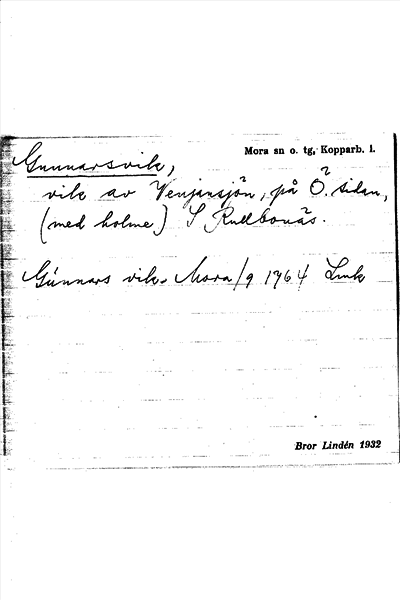 Mora sn o. tg, Kopparb. l.
Gunnarsvik,
vik av Venjansjön, på Ö. sidan,
(med holme) S Rullbonäs.
Gunnars vik. Mora/9 1764 Link
Bror Lindén 1932